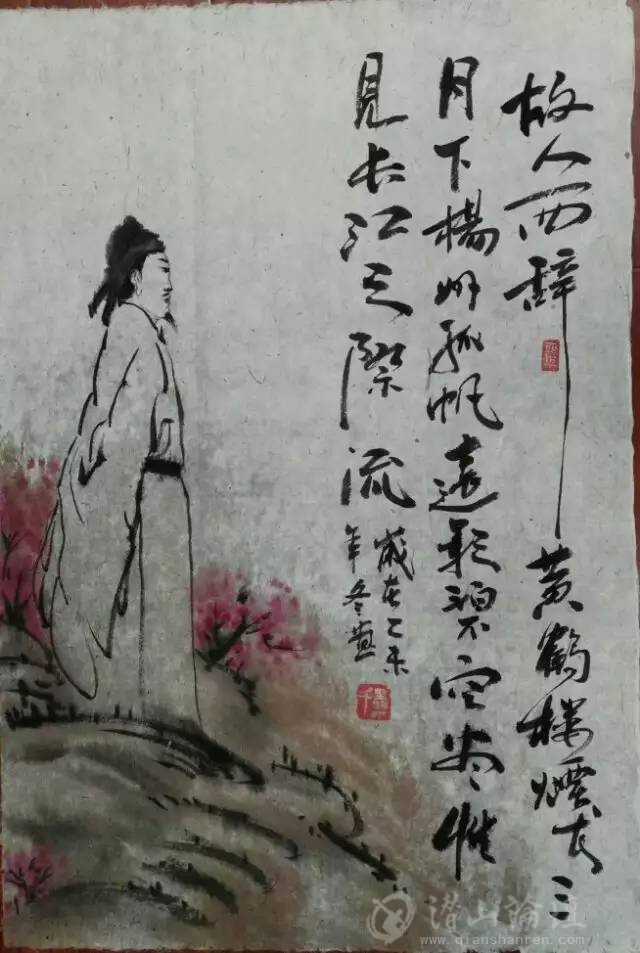 故人西辞黄鶴楼煙花三
月下楊州孤帆遠影碧空尽惟
見长江天際流
歲在乙未
年冬畫
潜山論壇
www.qianshanren.com